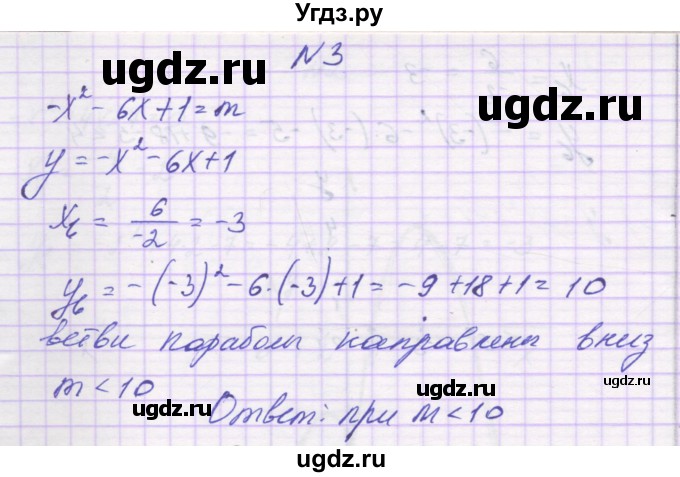 Угдз.ру
N 3
ugdz.ru ugdz.ru
-x² - 6x + 1 = m
y = -x² - 6x + 1
ugdz.ru
x_в = 6/-2 = -3
ugdz.ru
y_в = -(-3)² - 6·(-3) + 1 = -9 + 18 + 1 = 10
ветви параболы направлены вниз
ugdz.ru
m < 10
ugdz.ru ugdz.ru
Ответ: при m < 10
ugdz.ru